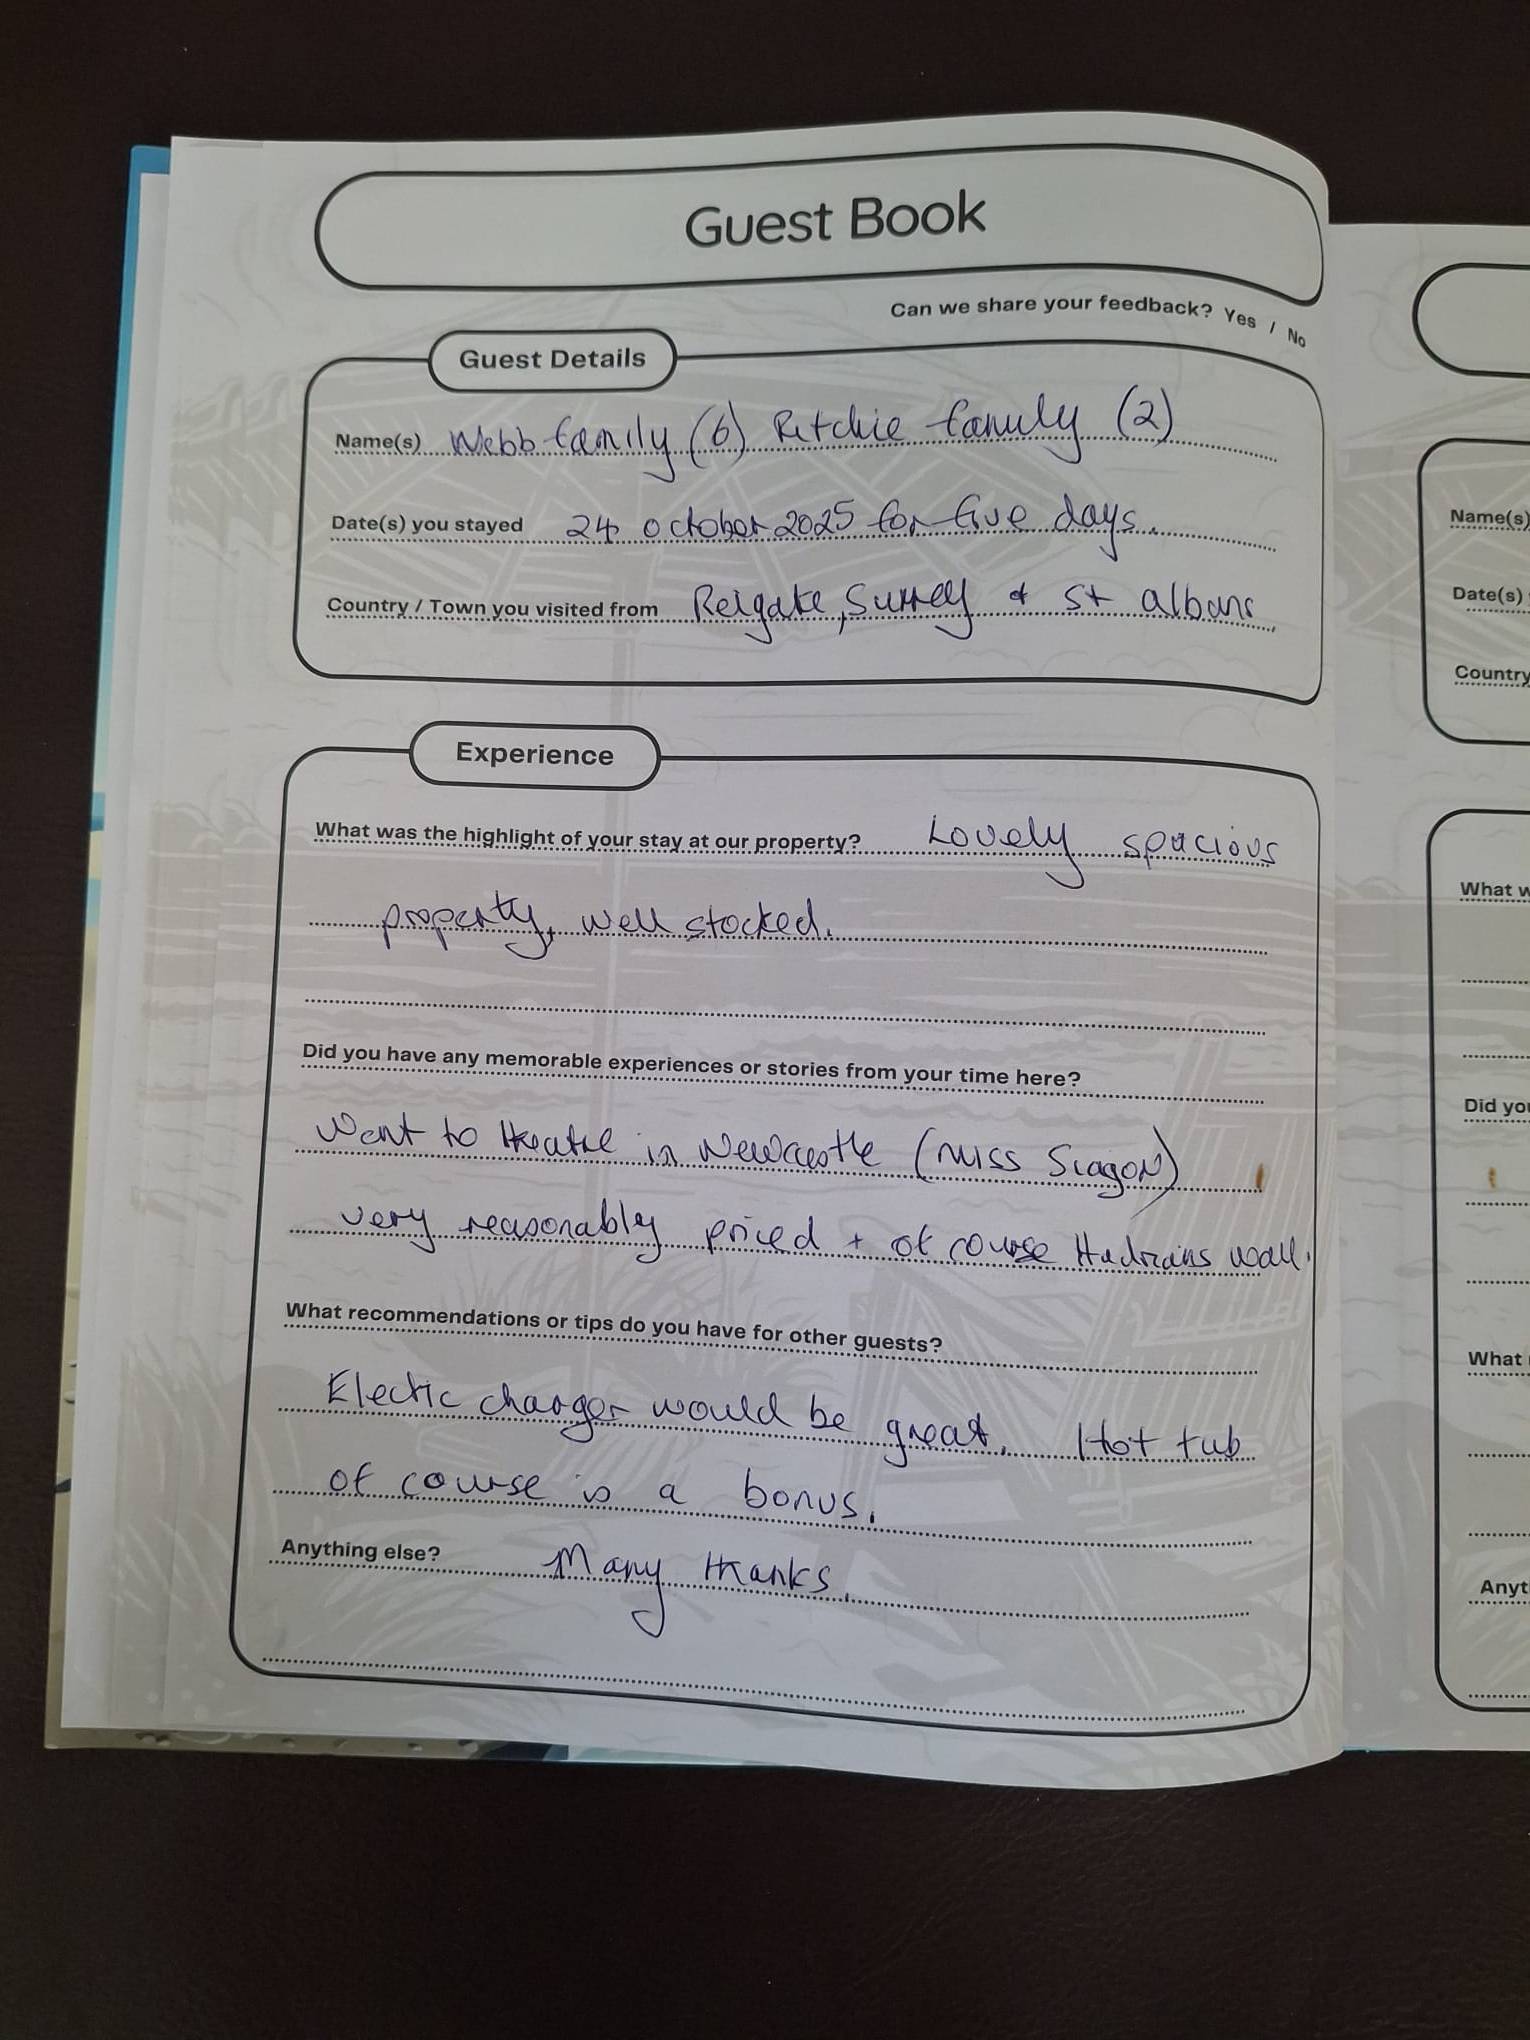 Guest Book
Can we share your feedback? Yes / No
Guest Details
Name(s) Webb family (6) Ritchie family (2)
Date(s) you stayed 24 october 2025 for five days.
Country / Town you visited from Reigate, Surrey & St albans
Experience
What was the highlight of your stay at our property? Lovely spacious
property, well stocked.
Did you have any memorable experiences or stories from your time here?
Went to theatre in Newcastle (Miss Siagon)
very reasonably priced + of course Hadrians wall.
What recommendations or tips do you have for other guests?
Electic charger would be great. Hot tub
of course is a bonus.
Anything else? Many thanks.
Name(s)
Date(s)
Country
What w
Did you
What
Anyt